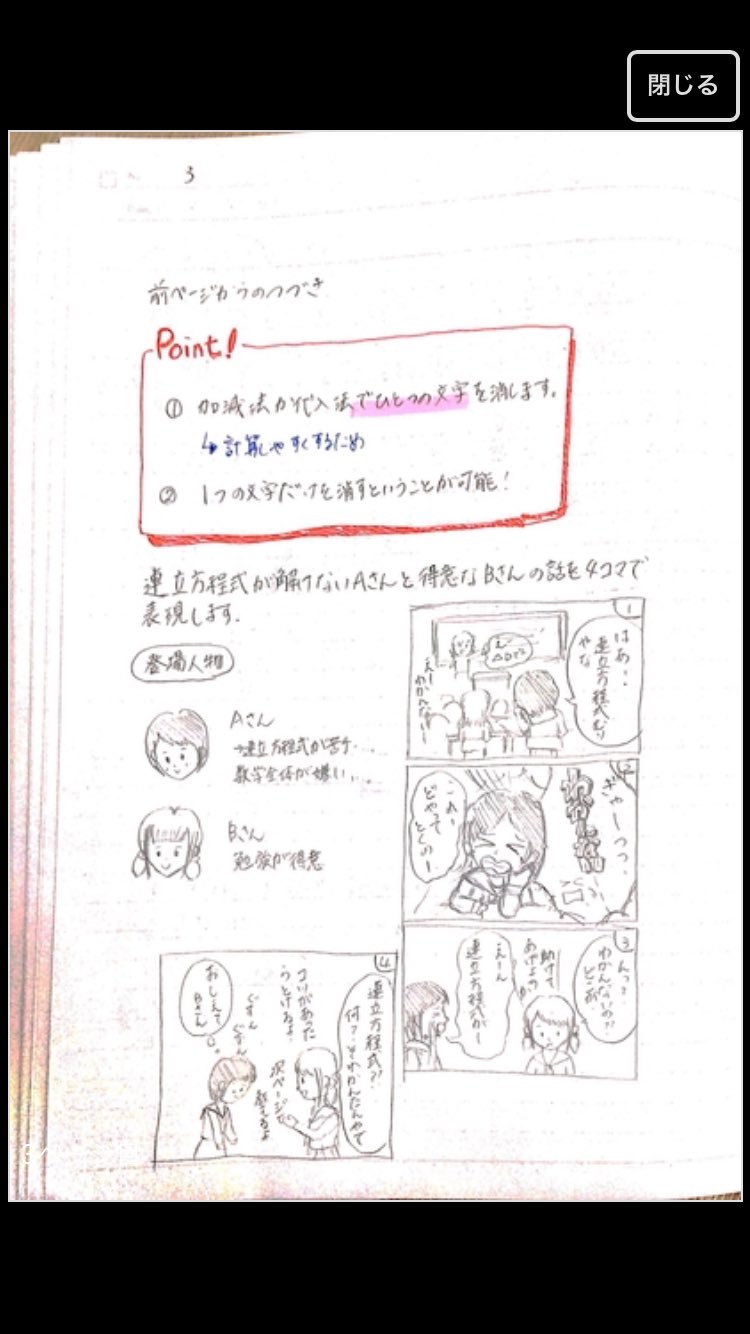 閉じる
3
前ページからのつづき
Point!
① 加減法か代入法でひとつの文字を消します。
↳計算しやすくするため
② 1つの文字だけを消すということが可能!
連立方程式が解けないAさんと得意なBさんの話を4コマで
表現します.
登場人物
Aさん
→連立方程式が苦手...
数学全体が嫌い...
Bさん
勉強が得意
1
はあ..
連立方程式
やな
えー
わかんない
2
ぎゃーっっ、
これ、
どやって
とくのー
3
んっ?
わかんないの?!
どこが
助けて
あげよのか
えーん
連立方程式がー
4
連立方程式?!
何?それかんたんやで
コツがあった
らとけるよ!
ぐすん
ぐすん
おしえて
Bさん
次ページで
教えるよ